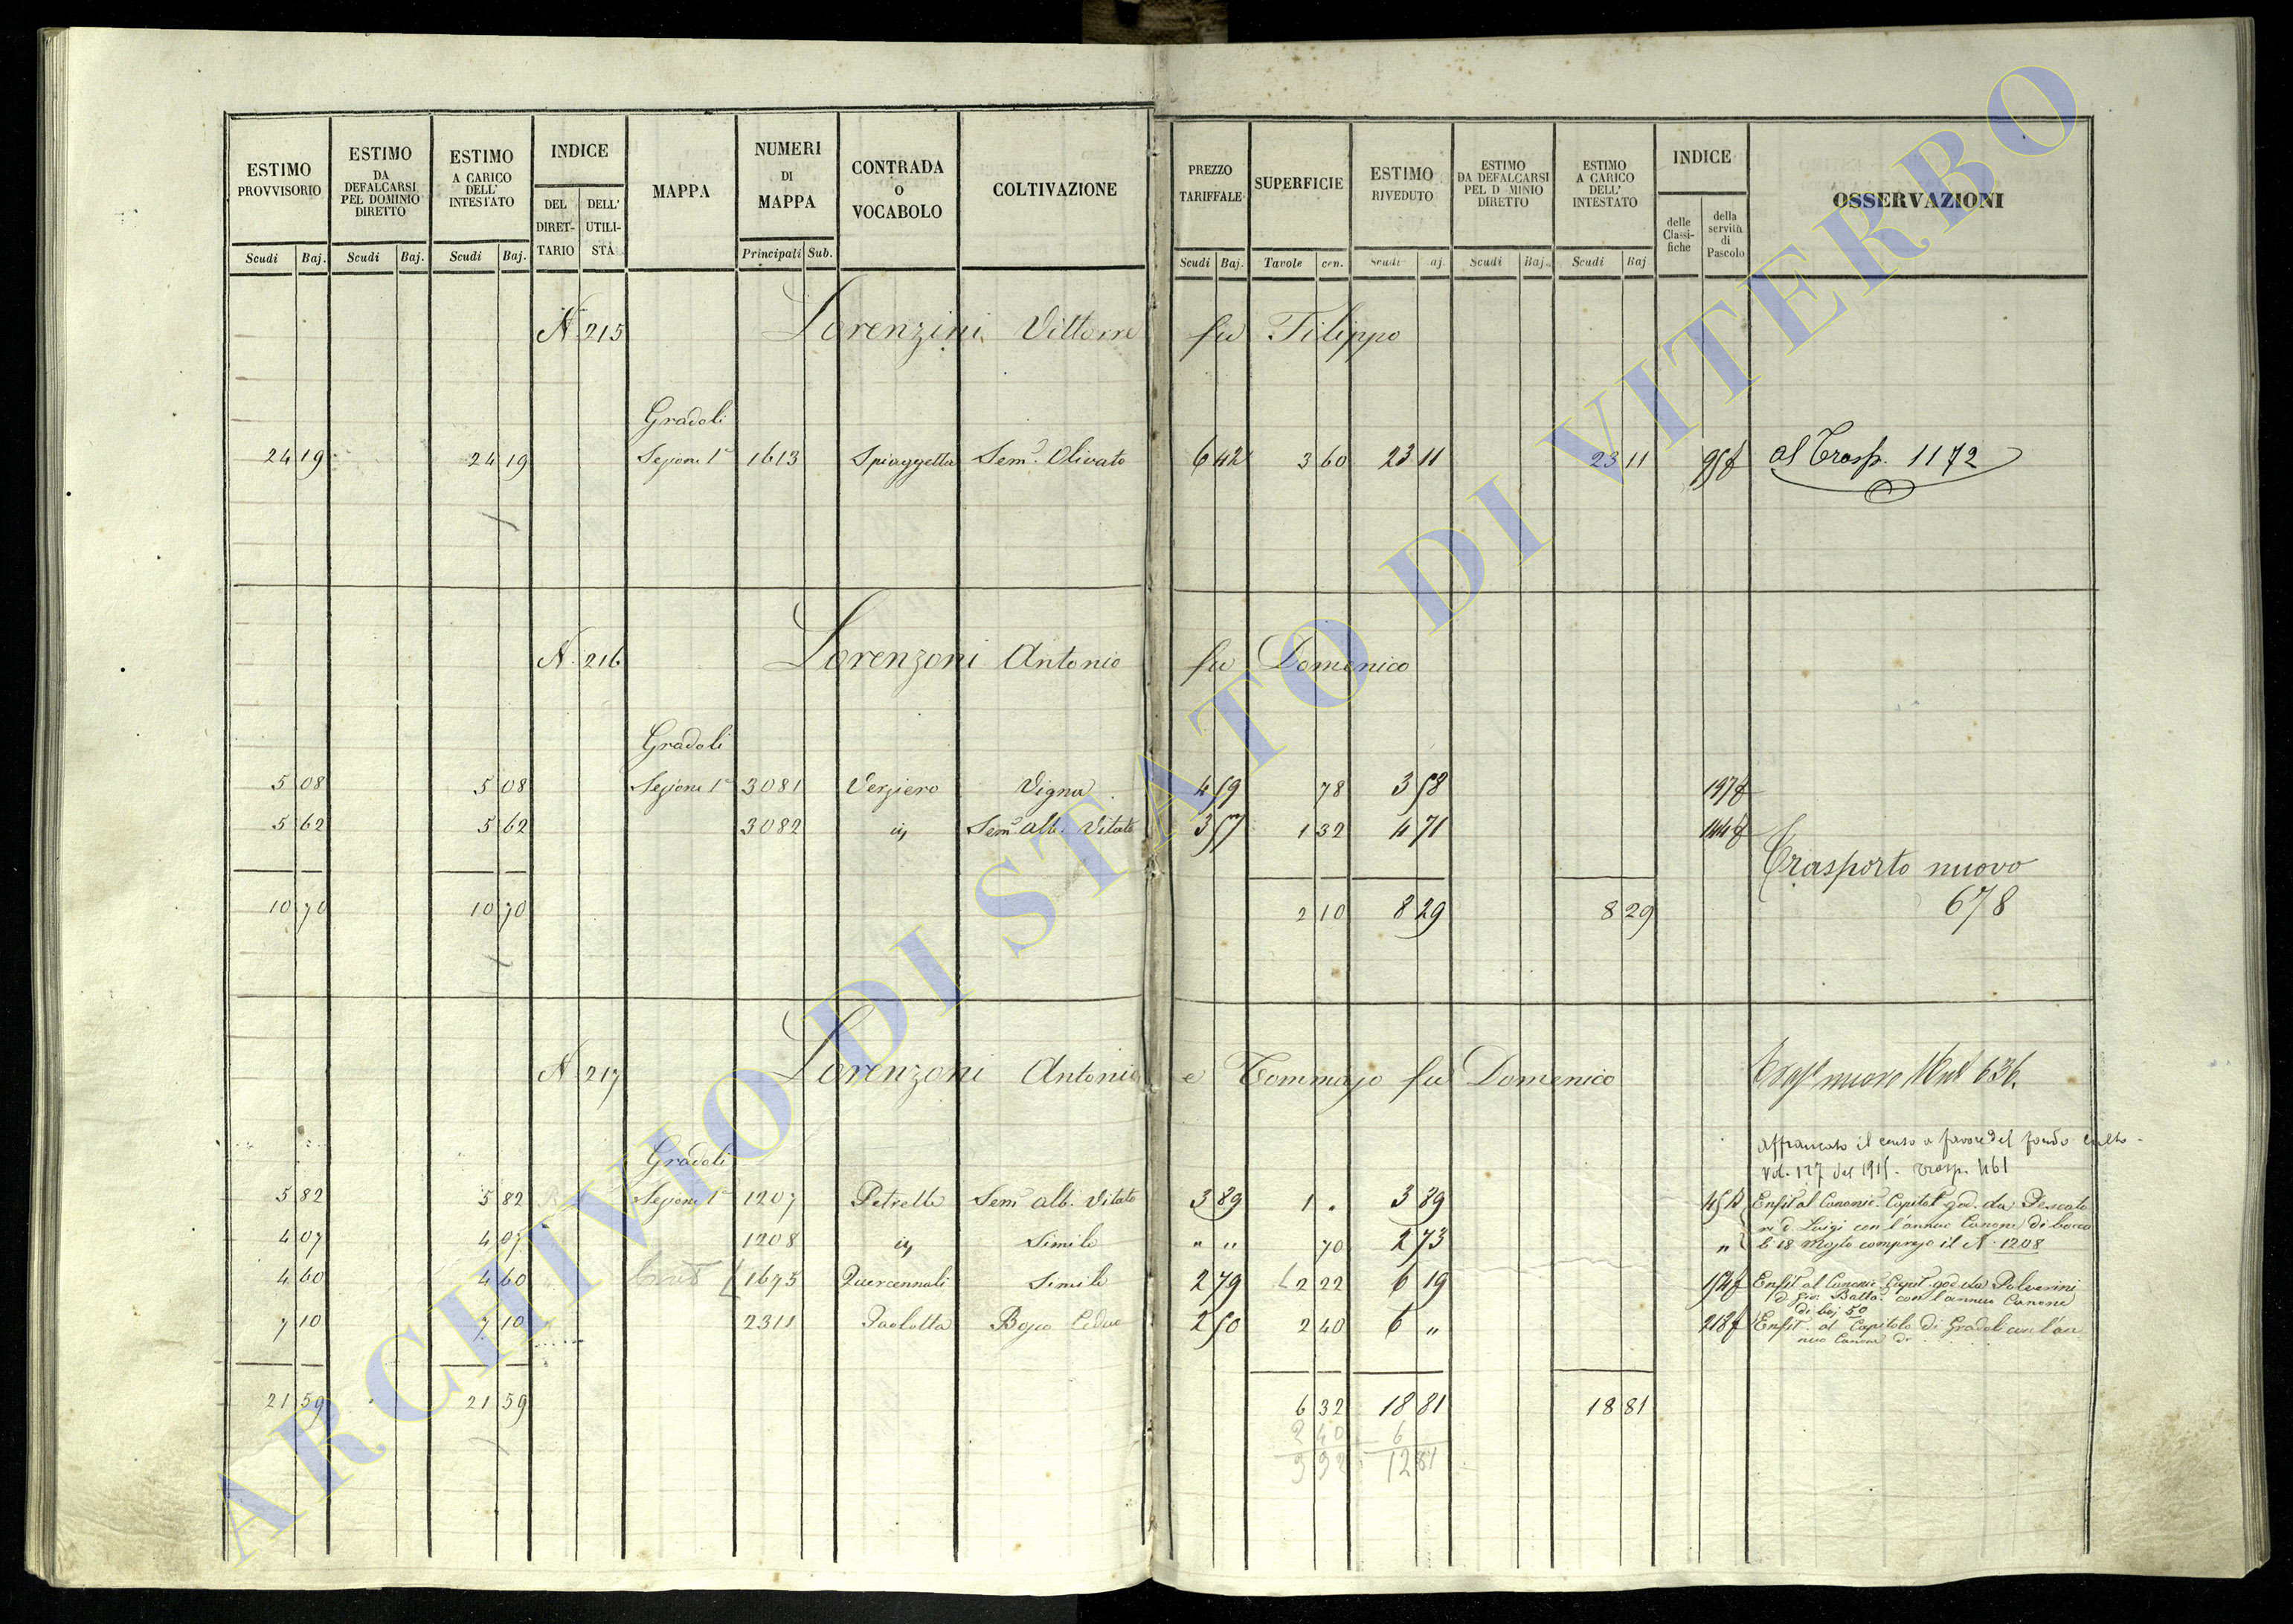 ESTIMO PROVVISORIO Scudi Baj.
ESTIMO DA DEFALCARSI PEL DOMINIO DIRETTO Scudi Baj.
ESTIMO A CARICO DELL' INTESTATO Scudi Baj.
INDICE DEL DIRET-TARIO DELL' UTILI-STA
MAPPA
NUMERI DI MAPPA Principali Sub.
CONTRADA O VOCABOLO
COLTIVAZIONE
PREZZO TARIFFALE Scudi Baj.
SUPERFICIE Tavole cen.
ESTIMO RIVEDUTO Scudi aj.
ESTIMO DA DEFALCARSI PEL D MINIO DIRETTO Scudi Baj.
ESTIMO A CARICO DELL' INTESTATO Scudi Baj
INDICE delle Classi-fiche della servitù di Pascolo
OSSERVAZIONI
N. 215 Lorenzini Vittorio fu Filippo
Gradoli
24 19 24 19 Sezione 1a 1613 Spiaggetta Sem.o Olivato 6 42 3 60 23 11 23 11 al Trasp. 1172
N. 216 Lorenzoni Antonio fu Domenico
Gradoli
5 08 5 08 Sezione 1a 3081 Verziero Vigna 4 59 78 3 58 197
5 62 5 62 3082 Sem.o alb. Vitato 3 57 1 32 4 71 144
Trasporto nuovo
10 70 10 70 2 10 8 29 8 29 678
N. 217 Lorenzoni Antonio e Tommaso fu Domenico nuovo 636.
Affrancato il censo a favore del fondo culto
Gradoli
Vol. 127 del 1915. Trasp. 461
5 82 5 82 Sezione 1a 1207 Petrella Sem.o alb. Vitato 3 89 1 . 3 89 Enfit. al Canonic. Capitol. god. da Pescato
ri d. Luigi con l'annuo Canone di bocca
4 07 4 07 1208 Simile " " 70 2 73 " li 18 Mosto compreso il N. 1208
4 60 4 60 1675 Quercennali Simile 2 79 2 22 6 19 154 Enfit. al Canonic. Capit. god. da Polverini
d. Gio. Batta. con l'annuo Canone
di baj 50
7 10 7 10 2311 Paoletta Bosco Ceduo 2 50 2 40 6 " 218 Enfit. al Capitolo di Gradoli con l'an
nuo Canone di
21 59 21 59 6 32 18 81 18 81
2 40 6
3 92 12 81
ARCHIVIO DI STATO DI VITERBO